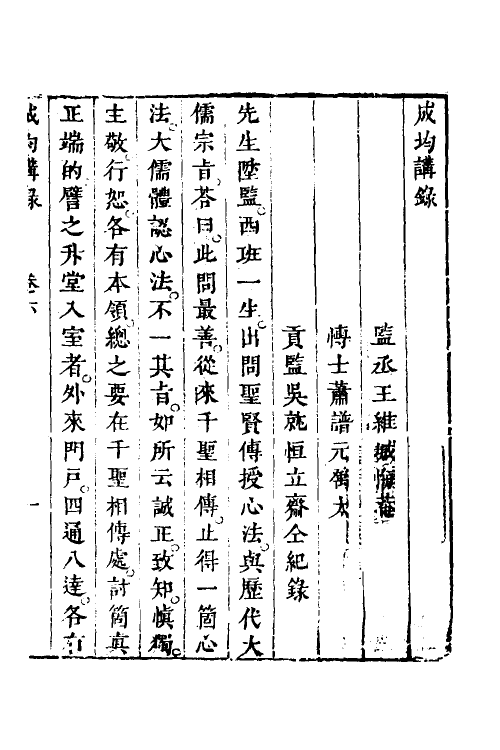 成均講錄
監丞王維
博士蕭譜元
貢監吳就恒立齋仝紀錄
先生陞監。西班一生。出問聖賢傳授心法。與歷代大
儒宗旨。荅曰。此問最善。從來千聖相傳。止得一箇心
法。大儒體認心法。不一其旨。如所云誠正。致知。慎獨。
主敬。行恕。各有本領。總之要在千聖相傳處。討箇真
正端的。譬之升堂入室者。外來門戶。四通八達。各有
成均講錄 卷六 一